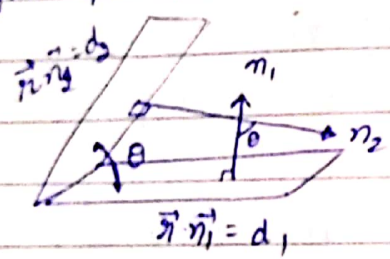 r⃗·n⃗₂ = d₂
n₁
θ
θ
n₂
r⃗·n⃗₁ = d₁